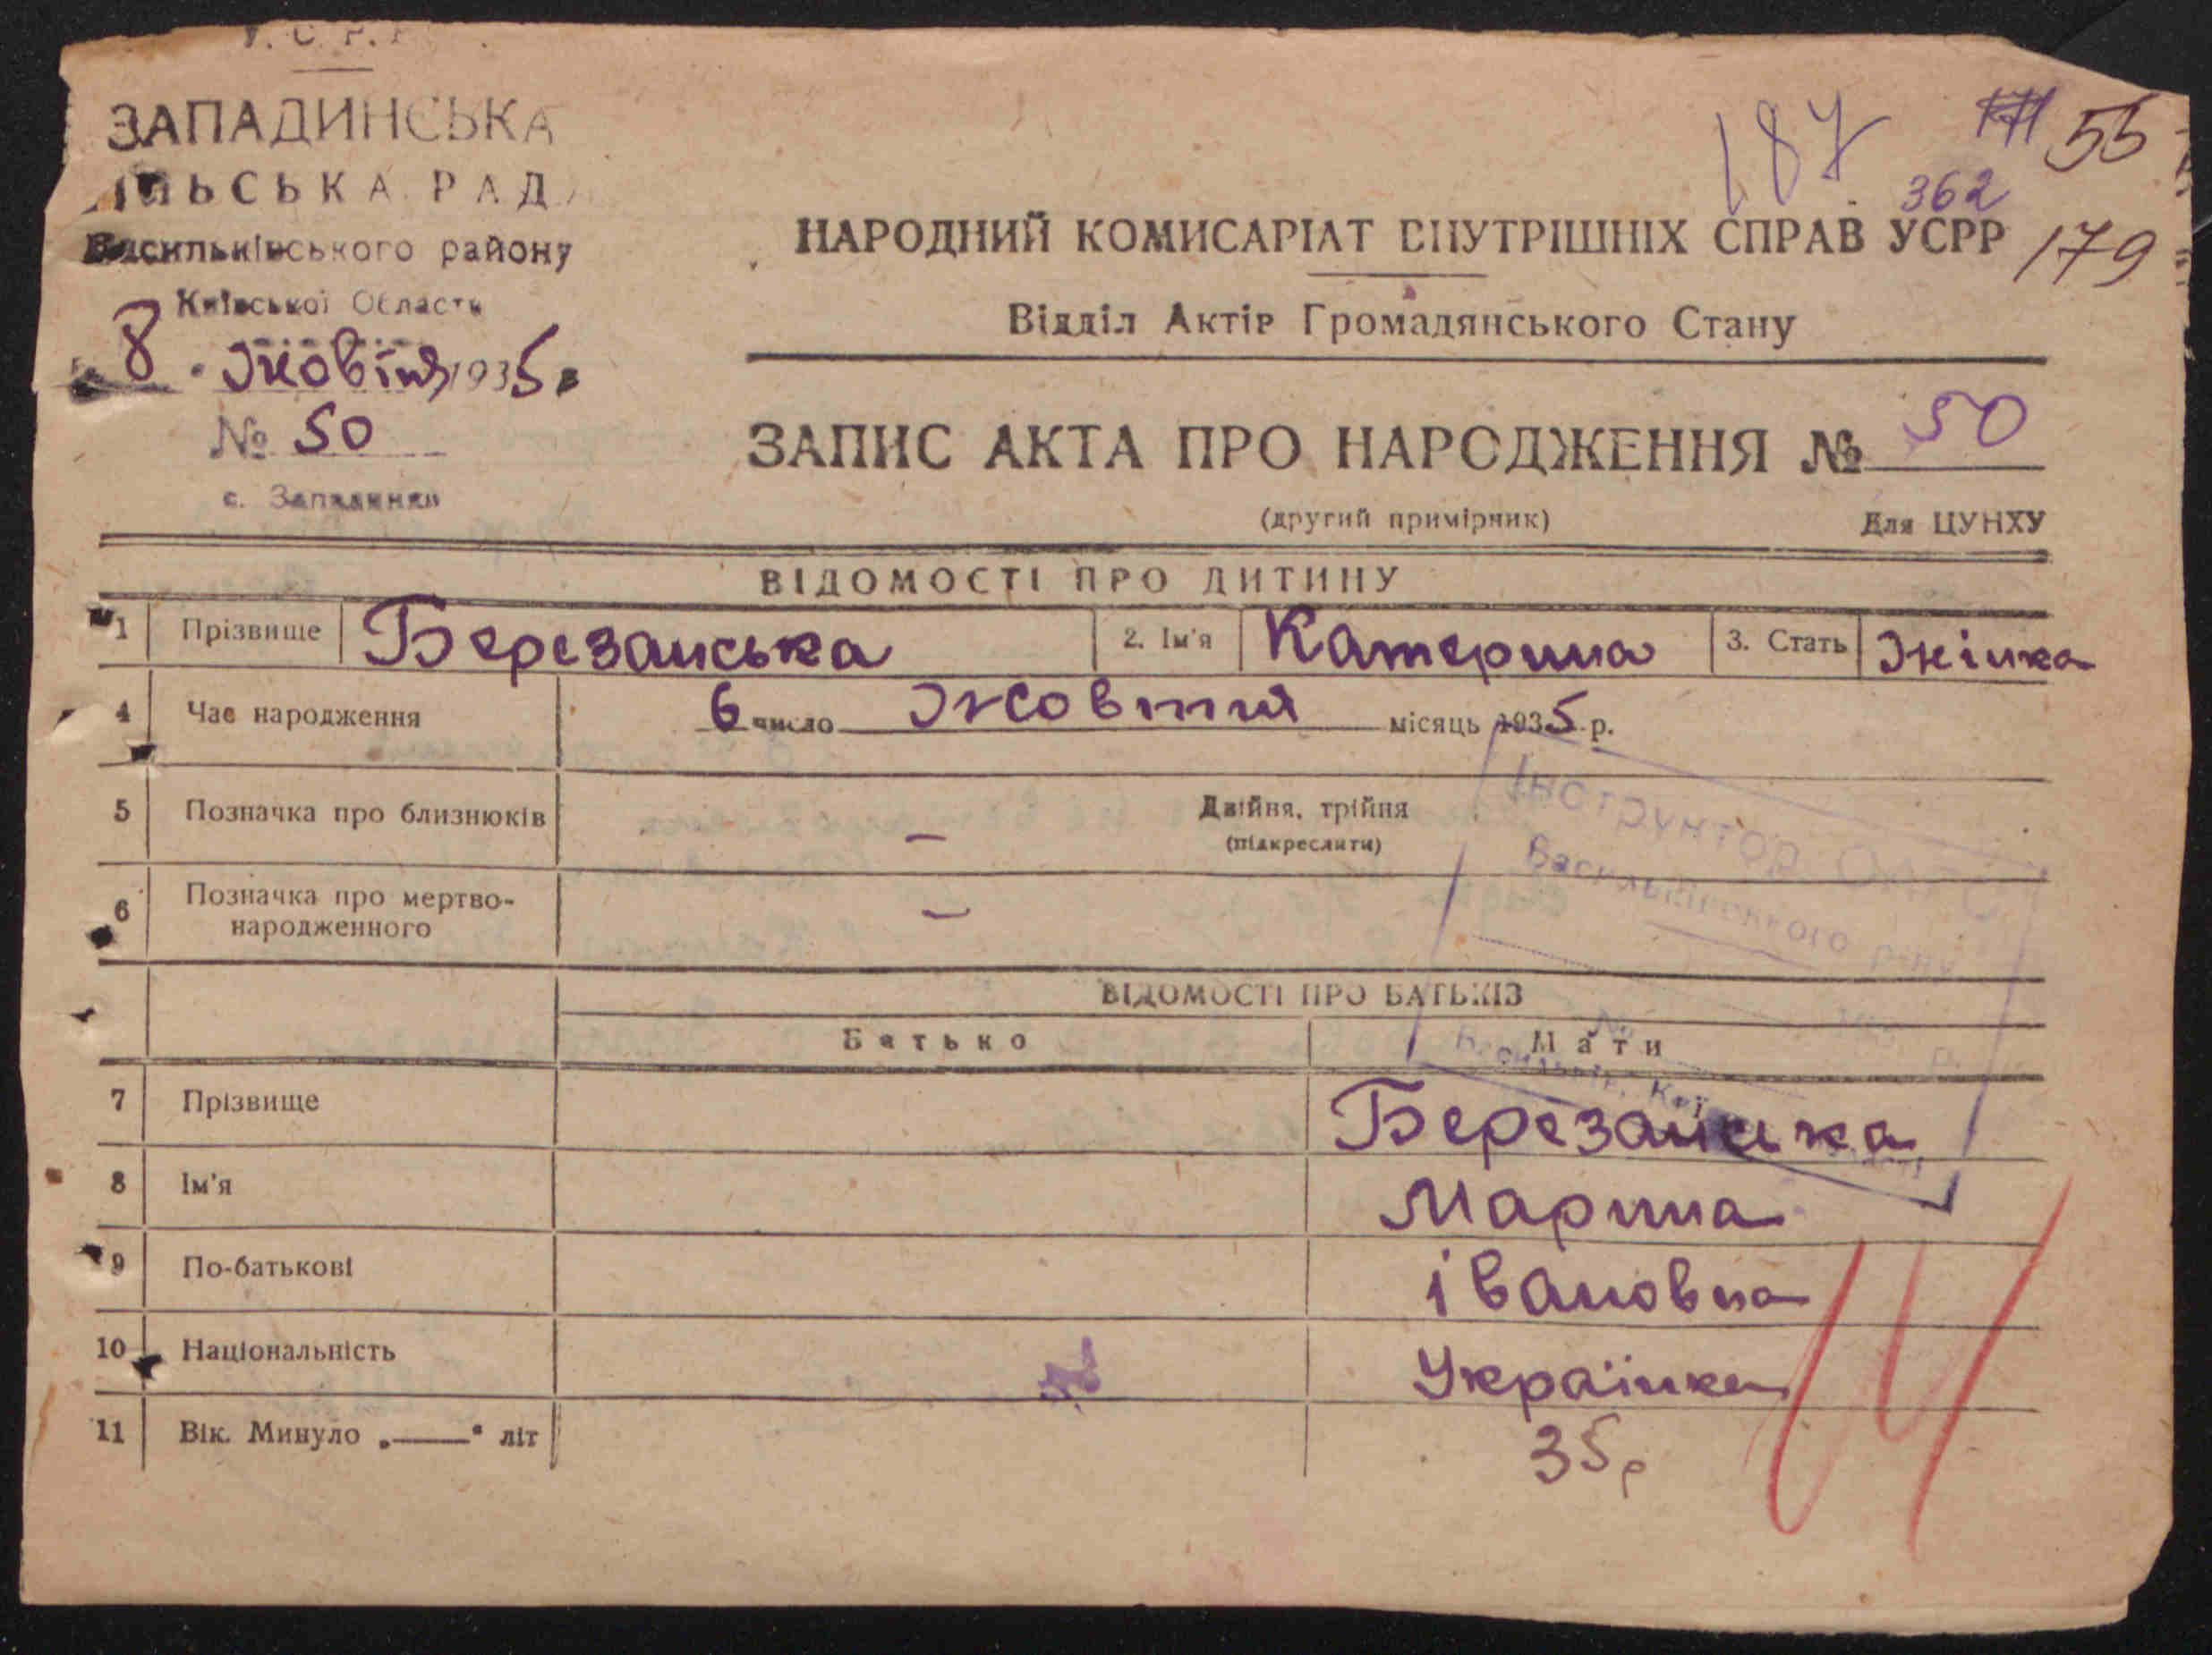 У. С. Р. Р.
ЗАПАДИНСЬКА
СІЛЬСЬКА РАДА
Васильківського району
Київської Области
8 Жовтня 1935 р
№ 50
с. Западинка
187 171 55
362
179
НАРОДНИЙ КОМИСАРІАТ ВНУТРІШНІХ СПРАВ УСРР
Відділ Актів Громадянського Стану
ЗАПИС АКТА ПРО НАРОДЖЕННЯ № 50
(другий примірник) Для ЦУНХУ
ВІДОМОСТІ ПРО ДИТИНУ
1 Прізвище Березанська 2. Ім'я Катерина 3. Стать Жінка
4 Час народження 6 число Жовтня місяць 1935 р.
5 Позначка про близнюків — Двійня, трійня
(підкреслити)
Інструктор ОАГС
Васильківського р-ну
6 Позначка про мертво-
народженного —
ВІДОМОСТІ ПРО БАТЬКІВ
Батько Мати
7 Прізвище Березанська
8 Ім'я Марина
9 По-батькові івановна
10 Національність Українка
11 Вік. Минуло „—“ літ 35 р
14